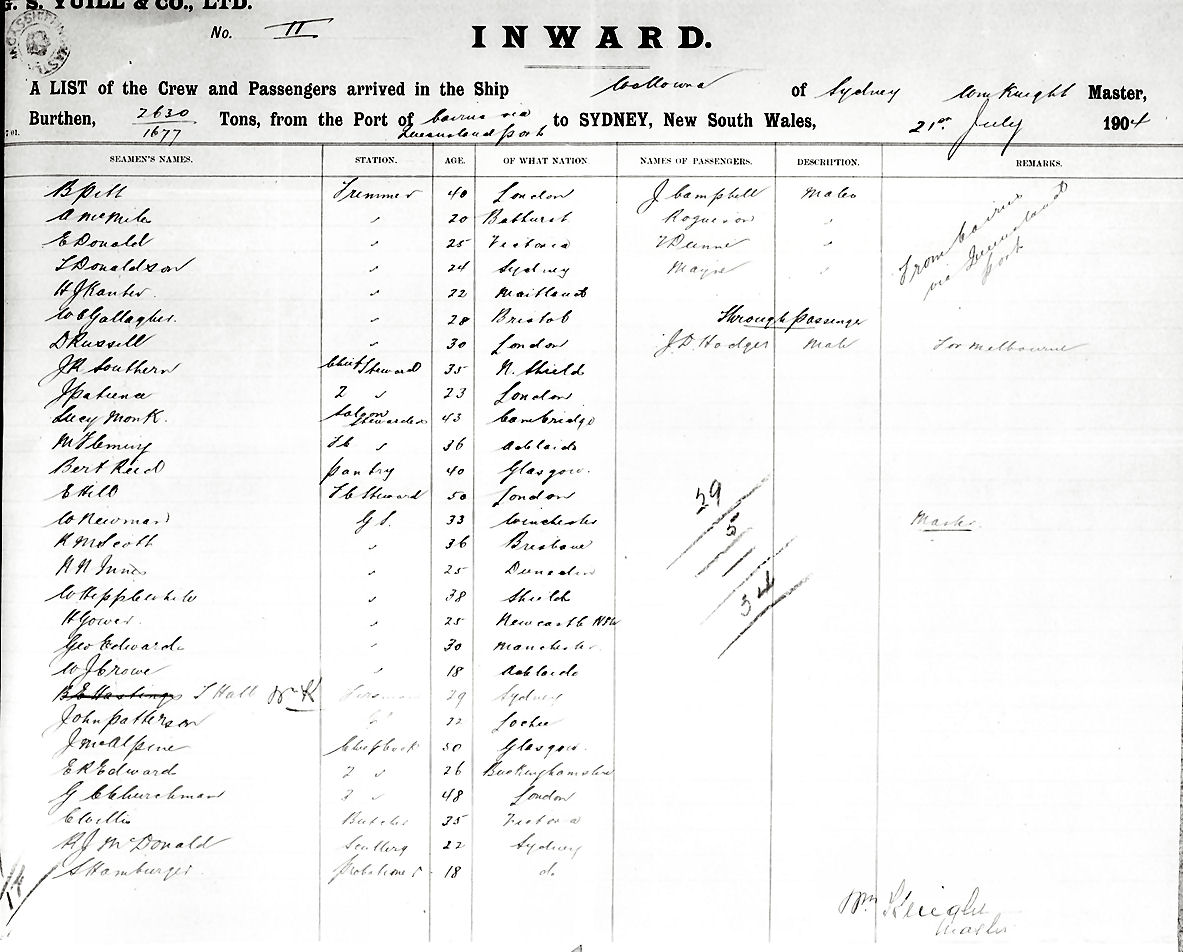 G. S. YUILL & CO., LTD.
No. II
INWARD.
A LIST of the Crew and Passengers arrived in the Ship Wollowra of Sydney Wm Knight Master,
Burthen, 2630 / 1677 Tons, from the Port of Cairns via Queensland Ports to SYDNEY, New South Wales, 21st July 1904
SEAMEN'S NAMES. STATION. AGE. OF WHAT NATION NAMES OF PASSENGERS. DESCRIPTION. REMARKS.
B Pitt Trimmer 40 London J Campbell Males
A McMile " 20 Bathurst Rogueson "
E Donald " 25 Victoria Dunne "
T Donaldson " 24 Sydney Mayne "
From Cairns via Queensland Ports
H J Kanter " 22 Maitland
W C Gallagher " 28 Bristol Through Passenger
D Russell " 30 London J. D. Hodges Male For Melbourne
J R Southern Chief Steward 35 N. Shield
J Patience 2 " 23 London
Lucy Monk Saloon Stewardess 43 Cambridge
M Fleming " 36 Adelaide
Bert Reid Pantry 40 Glasgow
E Hill Steward 50 London
W Newman G S. 33 Winchester Master
R McScott " 36 Brisbane
R N Innes " 25 Dunedin
W Hepplewhite " 38 Shield
H Gower " 25 Newcastle NSW
Geo Edwards " 30 Manchester
W J Crowe " 18 Adelaide
B E Hastings T Hall Wm K Fireman 29 Sydney
John Patterson " 22 Lochee
J McAlpine Chief Cook 50 Glasgow
E R Edward 2 " 26 Buckinghamshire
G C Churchman 3 " 48 London
C Willis Butcher 35 Victoria
R J McDonald Scullery 22 Sydney
S Hamburger 18 do
29
5
34
14
Wm Knight
Master